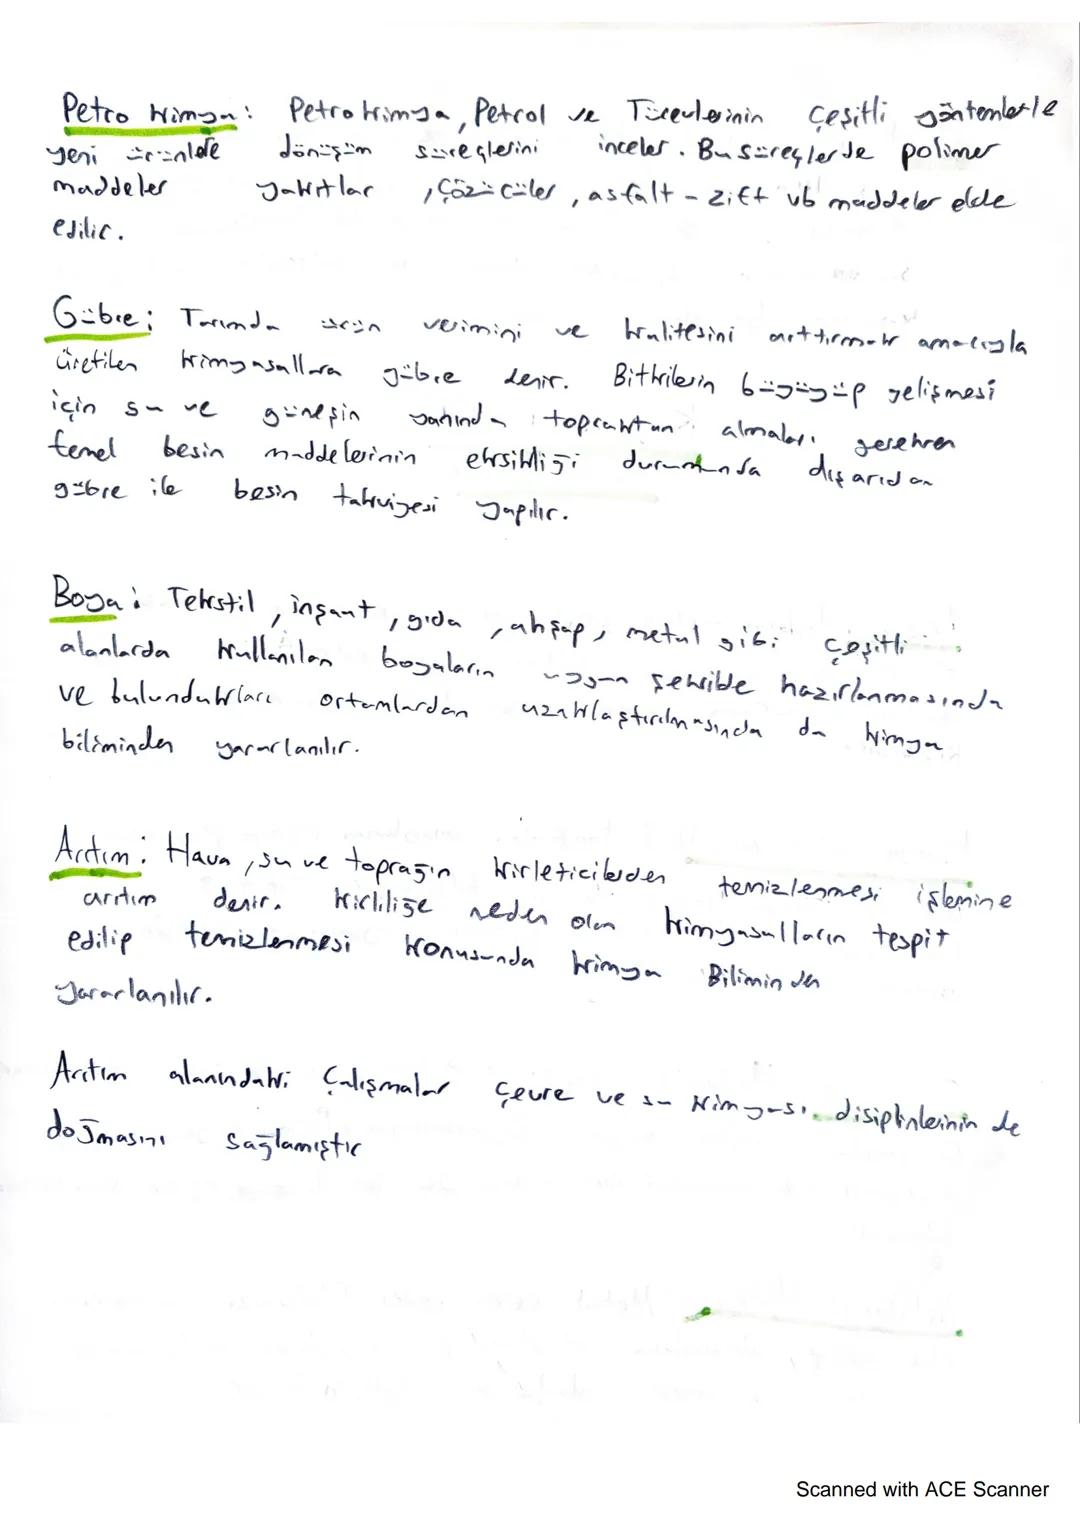 Petro kimya: Petrokimya, Petrol ve Türevlerinin çeşitli yöntemlerle
yeni ürünlere dönüşüm süreçlerini inceler. Bu süreçlerde polimer
maddeler yakıtlar , Çözücüler , asfalt - zift vb maddeler elde
edilir.
Gübre: Tarımda ürün verimini ve kalitesini arttırmak amacıyla
üretilen kimyasallara gübre denir. Bitkilerin büyüyüp gelişmesi
için su ve güneşin yanında topraktan almaları gereken
temel besin maddelerinin eksikliği durumunda dışarıdan
gübre ile besin takviyesi yapılır.
Boya: Tekstil , inşaat , gıda , ahşap, metal gibi çeşitli
alanlarda kullanılan boyaların uygun şekilde hazırlanmasında
ve bulundukları ortamlardan uzaklaştırılmasında da kimya
biliminden yararlanılır.
Arıtım: Hava , su ve toprağın kirleticilerden temizlenmesi işlemine
arıtım denir. kirliliğe neden olan kimyasalların tespit
edilip temizlenmesi konusunda kimya Biliminden
yararlanılır.
Arıtım alanındaki Çalışmalar Çevre ve su kimyası disiplinlerinin de
doğmasını sağlamıştır
Scanned with ACE Scanner